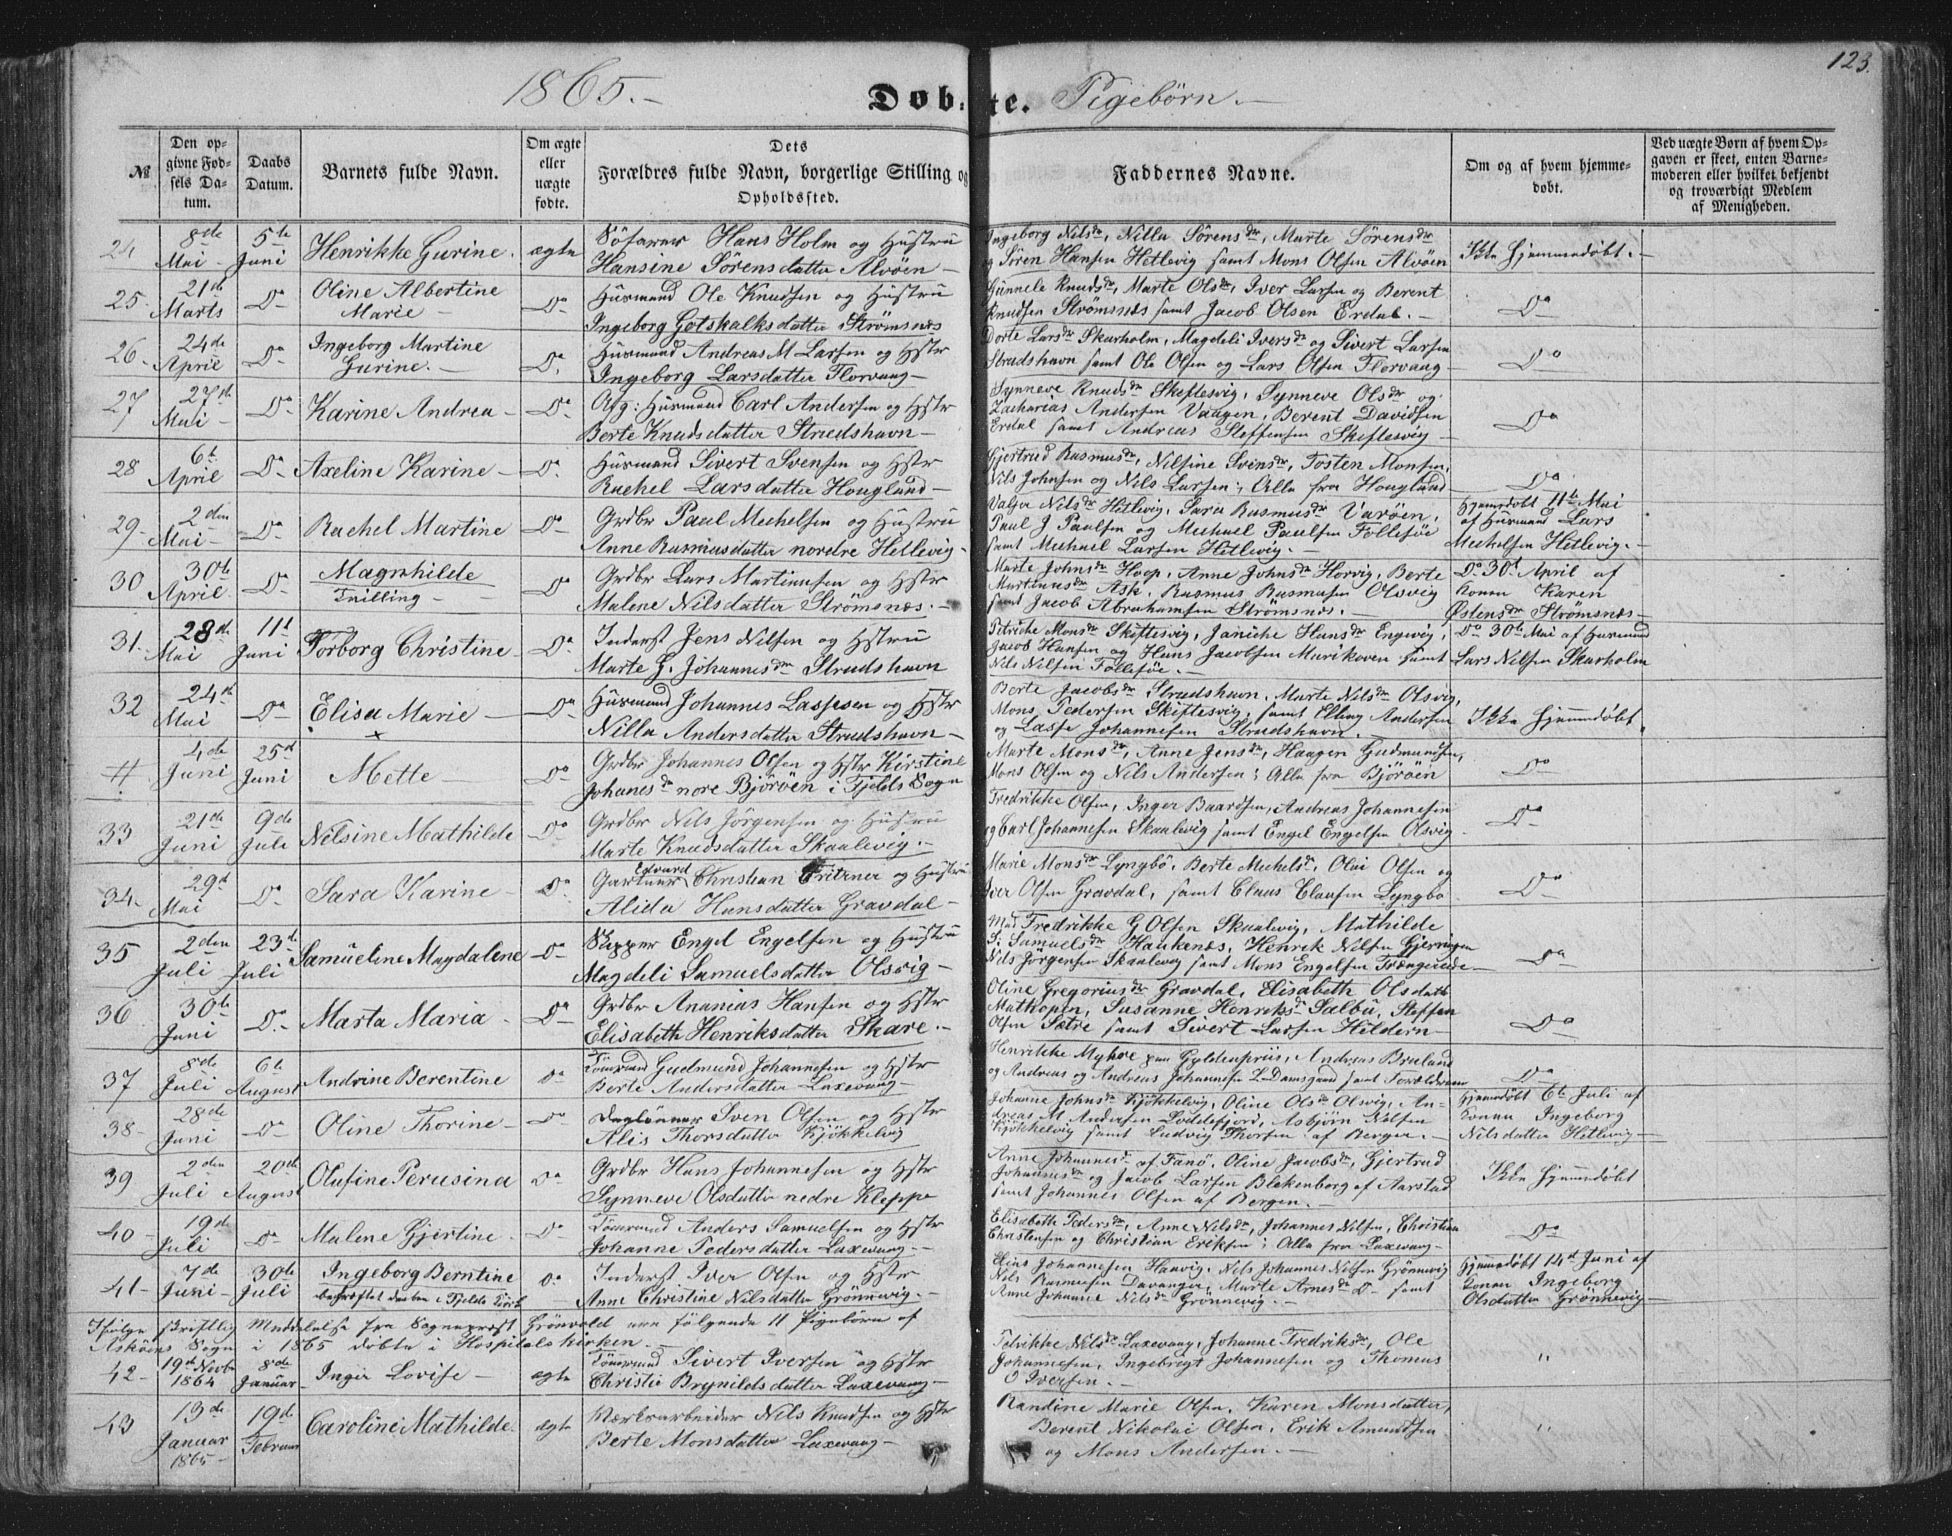 123.
1865.-
Døbte. Pigebørn.-
№
Den opgivne Fødsels Datum.
Daabs Datum.
Barnets fulde Navn.
Om ægte eller uægte fødte.
Dets Forældres fulde Navn, borgerlige Stilling og Opholdssted.
Faddernes Navne.
Om og af hvem hjemmedøbt.
Ved uægte Børn af hvem Opgaven er skeet, enten Barnemoderen eller hvilket bekjendt og troværdigt Medlem af Menigheden.
24 8de Mai - 5te Juni Henrikke Gurine. ægte
Hans Holm og Hustru
Hansine Sörensdatter Alvöen -
Ingeborg Nilsdr, Nilla Sörensdr, Marte Sörensdr
og Sören Hansen Hetlevig samt Mons Olsen Alvöen
Ikke hjemmedøbt.-
25. 21de Marts Do Oline Albertine Marie - Do
Husmand Ole Knudsen og Hustru
Ingeborg Gotskalksdatter Strömsnes
Gunnele Knudsdr, Marte Olsdr, Iver Larsen og Berent
Knudsen Strömsnes samt Jacob Olsen Erdal.-
Do
26. 24de April Do Ingeborg Martine Gurine.- Do.
Husmand Andreas M Larsen og Hstr
Ingeborg Larsdatter Florvaag-
Dorte Larsdr Skarholm, Magdeli Iversdr og Sivert Larsen
Strudshavn samt Ole Olsen og Lars Olsen Florvaag-
Do
27 27de Mai - Do Karine Andrea - Do
Afg: Husmand Carl Andersen og Hstr
Berte Knudsdatter Strudshavn-
Synneve Knudsdr Skiftesvig, Synneve Olsdr og
Zacharias Andersen Vaagen, Berent Davidsen
Erdal samt Andreas Steffensen Skiftesvig-
Do
28 6te April Do Axeline Karine - Do.
Husmand Sivert Svensen og Hstr
Rachel Larsdatter Houglund-
Gjertrud Rasmusdr, Nilsine Svensdr, Tosten Monsen,
Nils Johnsen og Nils Larsen; Alle fra Houglund-
Do
29. 2den Mai - Do Rachel Martine Do
Grdbr Paul Mechelsen og Hustru
Anne Rasmusdatter nordre Hetlevig.
Nilsdr Hetlevig, Sara Rasmusdr Varöen,
Paul J Paulsen og Michael Paulsen Follesöe
samt Michael Larsen Hetlevig.-
Hjemmdøbt 11te Mai
af Husmand Lars
Mechelsen Hetlevig.-
30 30te April Do Magnhilde Do
Tvilling -
Grdbr Lars Martinusen og Hstr
Malene Nilsdatter Strömsnes.-
Marte Johnsdr Hop, Anne Johnsdr Horvig, Berte
Martinusdr Ask, Rasmus Rasmusen Olsvig
samt Jacob Abrahamsen Strömsnes.-
Do 30te April af
Konen Karen
Östensdr Strömsnes-
31. 28de Mai 11te Juni Torborg Christine - Do.
Inderst Jens Nilsen og Hstru
Marte G. Johannisdr Strudshavn
Monsdr Skiftesvig, Janiche Hansdr Engevig,
Jacob Hansen og Hans Jacobsen Marikoven samt
Nils Nilsen Follesöe.-
Do 30te Mai af Husmand
Lars Nilsen Skarholm
32 24de Mai Do Elisa Marie - Do
Husmand Johannes Lassesen og Hstr
Nilla Andersdatter Strudshavn-
Berte Jacobsdr Strudshavn, Marte Nilsdr Olsvig,
Mons Pedersen Skiftesvig, samt Elling Andersen
og Lasse Johannesen Strudshavn.
Ikke hjemmdøbt
4de Juni 25de Juni Mette - Do
Grdbr Johannes Olsen og Hstr Kirstine
Johanesdr nore Björöen i Fjelds Sogn
Marte Monsdr, Anne Jensdr, Haagen Gudmundsen,
Mons Olsen og Nils Andersen; Alle fra Björöen
Do
33 21de Juni 9de Juli Nilsine Mathilde Do
Grdbr Nils Jörgensen og Hustru
Marte Knudsdatter Skaalevig.-
Fredrikke Olsen, Inger Baardsen, Andreas Johannesen
og Carl Johannesen Skaalevig samt Engel Engelsen Olsvig
Do
34- 29de Mai Do Sara Karine - Do.
Gartner Edvard Christian Fritzner og Hustru
Alida Hansdatter Gravdal-
Marie Monsdr Lyngbö, Berte Michelsdr, Olai Olsen og
Iver Olsen Gravdal, samt Claus Clausen Lyngbö
Do
35 2den Juli 23de Juli Samueline Magdalene Do
Skipper Engel Engelsen og Hustru
Magdeli Samuelsdatter Olsvig-
Fredrikke G Olsen Skaalevig, Mathilde
Samuelsdr Haukenæs, Henrik Nilsen Gjerringen
Nils Jörgensen Skaalevig samt Mons Engelsen
Do
36 30te Juni Do.- Marta Maria - Do
Grdbr Ananias Hansen og Hstr
Elisabeth Henriksdatter Skare.-
Oline Gregoriusdr Gravdal, Elisabeth Olsdatter
Mathopen, Susanne Henriksdr Salbu, Steffen
Olsen Sætre samt Sivert Larsen Hildern-
Do
37 8de Juli 6te August Andrine Berentine Do
Tömmrmand Gudmund Johannesen og Hstr
Berte Andersdatter Laxevaag-
Henrikke Myhre paa Gyldenpriis, Andreas Bruland
og Andreas og Andreas Johannesen L. Damsgaard samt Forældrene
Do
38- 28de Juni Do Oline Thorine - Do
Daglönner Sven Olsen og Hstr
Alis Thorsdatter Kjökkelvig
Johanne Johnsdr Kjökkelvig, Oline Olsdr Olsvig, An-
dreas M. Andersen Loddefjord, Asbjörn Nilsen
Kjökkelvig samt Ludvig Thorsen af Bergen.-
Hjemmdøbt 6te Juli af
Konen Ingeborg
Nilsdatter Hetlevig-
39 2den Juli 20de August Olufine Perusina Do
Grdbr Hans Johannesen og Hstr
Synneve Olsdatter nedre Kleppe
Anne Johannesdr af Fanö, Oline Jacobsdr, Gjertrud
Johannesdr og Jacob Larsen Blekenborg af Aarstad
samt Johannes Olsen af Bergen.-
Ikke hjemmdøbt
40- 19de Juli Do Malene Gjertine. Do
Tömmrmand Anders Samuelsen og Hstr
Johanne Pedersdatter Laxevaag.-
Elisabeth Pedersdr, Anne Nilsdr, Johannes Nilsen, Christian
Christensen og Christian Eriksen; Alle fra Laxevaag-
Do
41- 7de Juni- 30te Juli Ingeborg Berntine Do
bekræftet Daaben i Fjelds Kirke
Inderst Iver Olsen og Hstr
Anne Christine Nilsdatter Grönnevig.-
Johannesen Haavig, Nils Johannes Nilsen Grönnevig
Nils Rasmusen Davanger, Marte Arnesdr Do samt
Anne Johanne Nilsdr Grönnevig.-
Hjemmdøbt 14de Juni af
Konen Ingeborg
Olsdatter Grönnevig-
Ifölge skriftlig Meddelelse fra Sognepræst Grönvold ere fölgende 11 Pigebörn af
Askøens Sogn i 1865 döbte i Hospitalskirken.-
42- 19de Novbr 1864 8de Januar Inger Lovise - ægte
Tömmrmand Sivert Iversen og Hstr
Christie Brynildsdatter Laxevaag-
Nilsdr Laxevaag, Johanne Fredriksdr, Ole
Johannesen, Ingebrigt Johannesen og Thomas
O Iversen.-
"
43 13de Januar 1865- 19de Februar Caroline Mathilde. ægte
Værksarbeider Nils Knudsen og Hstr
Berte Monsdatter Laxevaag-
Randine Marie Olsen, Karen Monsdatter,
Berent Nikolai Olsen, Erik Amundsen
og Mons Andersen.-
"